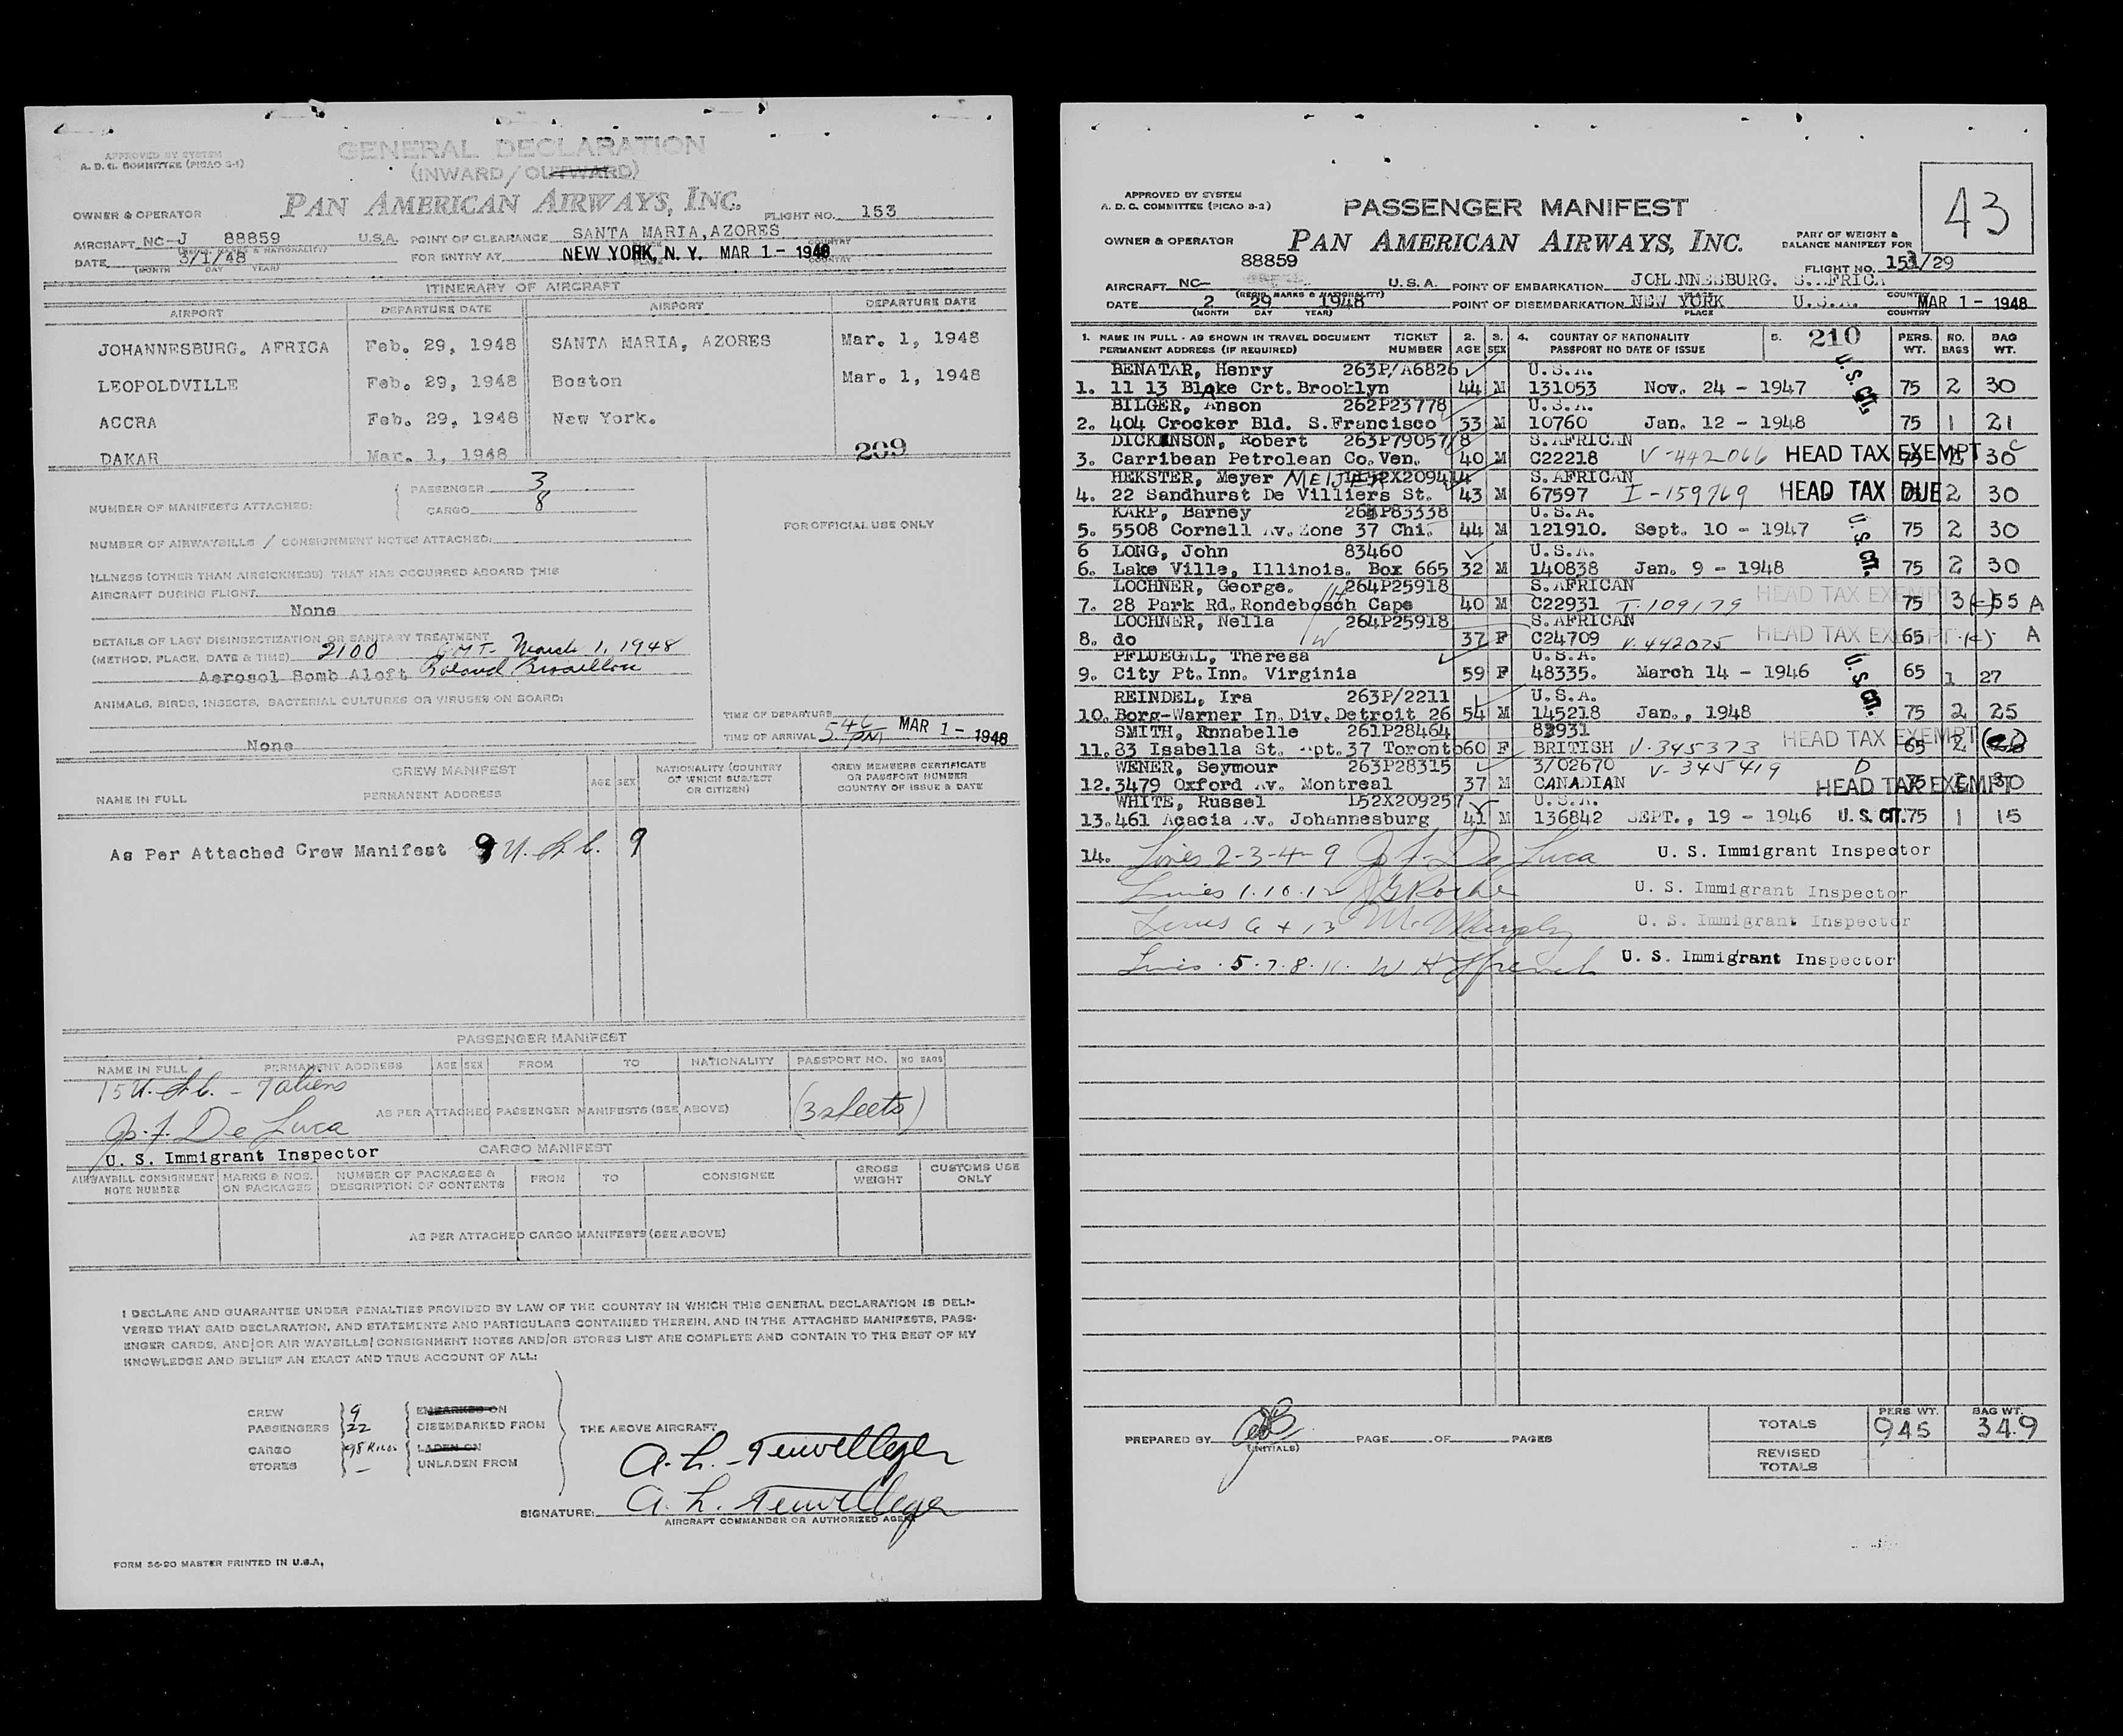 APPROVED BY SYSTEM
A. D. C. COMMITTEE (PICAO 3-1)
GENERAL DECLARATION
(INWARD/OUTWARD)
PAN AMERICAN AIRWAYS, INC.
OWNER & OPERATOR
FLIGHT NO. 153
AIRCRAFT NC-J 88859 U.S.A. POINT OF CLEARANCE SANTA MARIA, AZORES
(REGIS. MARKS & NATIONALITY) PLACE COUNTRY
DATE 3/1/48 FOR ENTRY AT NEW YORK, N. Y. MAR 1 - 1948
(MONTH DAY YEAR) PLACE COUNTRY
ITINERARY OF AIRCRAFT
AIRPORT DEPARTURE DATE AIRPORT DEPARTURE DATE
JOHANNESBURG. AFRICA Feb. 29, 1948 SANTA MARIA, AZORES Mar. 1, 1948
LEOPOLDVILLE Feb. 29, 1948 Boston Mar. 1, 1948
ACCRA Feb. 29, 1948 New York.
DAKAR Mar. 1, 1948 209
NUMBER OF MANIFESTS ATTACHED:
PASSENGER 3
CARGO 8
FOR OFFICIAL USE ONLY
NUMBER OF AIRWAYBILLS / CONSIGNMENT NOTES ATTACHED:
ILLNESS (OTHER THAN AIRSICKNESS) THAT HAS OCCURRED ABOARD THIS
AIRCRAFT DURING FLIGHT
None
DETAILS OF LAST DISINSECTIZATION OR SANITARY TREATMENT
(METHOD, PLACE, DATE & TIME) 2100 GMT - March 1, 1948
Aerosol Bomb Aloft
ANIMALS, BIRDS, INSECTS, BACTERIAL CULTURES OR VIRUSES ON BOARD:
None
TIME OF DEPARTURE
TIME OF ARRIVAL 5:46 PM MAR 1 - 1948
CREW MANIFEST
NAME IN FULL PERMANENT ADDRESS AGE SEX NATIONALITY (COUNTRY OF WHICH SUBJECT OR CITIZEN) CREW MEMBERS CERTIFICATE OR PASSPORT NUMBER COUNTRY OF ISSUE & DATE
As Per Attached Crew Manifest 9 U.S.C. 9
PASSENGER MANIFEST
NAME IN FULL PERMANENT ADDRESS AGE SEX FROM TO NATIONALITY PASSPORT NO. NO BAGS
15 U.S.C. - 7 aliens
AS PER ATTACHED PASSENGER MANIFESTS (SEE ABOVE) (3 sheets)
De Luca
U. S. Immigrant Inspector
CARGO MANIFEST
AIRWAYBILL CONSIGNMENT NOTE NUMBER MARKS & NOS. ON PACKAGES NUMBER OF PACKAGES & DESCRIPTION OF CONTENTS FROM TO CONSIGNEE GROSS WEIGHT CUSTOMS USE ONLY
AS PER ATTACHED CARGO MANIFESTS (SEE ABOVE)
I DECLARE AND GUARANTEE UNDER PENALTIES PROVIDED BY LAW OF THE COUNTRY IN WHICH THIS GENERAL DECLARATION IS DELI-
VERED THAT SAID DECLARATION, AND STATEMENTS AND PARTICULARS CONTAINED THEREIN, AND IN THE ATTACHED MANIFESTS, PASS-
ENGER CARDS, AND/OR AIR WAYBILLS/CONSIGNMENT NOTES AND/OR STORES LIST ARE COMPLETE AND CONTAIN TO THE BEST OF MY
KNOWLEDGE AND BELIEF AN EXACT AND TRUE ACCOUNT OF ALL:
CREW 9 EMBARKED ON
PASSENGERS 22 DISEMBARKED FROM THE ABOVE AIRCRAFT
CARGO 98 Kilos LADEN ON
STORES — UNLADEN FROM
SIGNATURE:
AIRCRAFT COMMANDER OR AUTHORIZED AGENT
FORM 36-20 MASTER PRINTED IN U.S.A.
APPROVED BY SYSTEM
A. D. C. COMMITTEE (PICAO 3-2)
PASSENGER MANIFEST
43
OWNER & OPERATOR PAN AMERICAN AIRWAYS, INC.
PART OF WEIGHT & BALANCE MANIFEST FOR
FLIGHT NO. 153/29
AIRCRAFT NC- 88859 U.S.A. POINT OF EMBARKATION JOHANNESBURG. S. AFRICA
(REGIS. MARKS & NATIONALITY) PLACE COUNTRY
DATE 2 29 1948 POINT OF DISEMBARKATION NEW YORK U.S.A. MAR 1 - 1948
(MONTH DAY YEAR) PLACE COUNTRY
1. NAME IN FULL - AS SHOWN IN TRAVEL DOCUMENT TICKET 2. 3. 4. COUNTRY OF NATIONALITY 5. 210 PERS. NO. BAG
PERMANENT ADDRESS (IF REQUIRED) NUMBER AGE SEX PASSPORT NO DATE OF ISSUE WT. BAGS WT.
BENATAR, Henry 263P/A6826 U.S.A.
1. 11 13 Blake Crt. Brooklyn 44 M 131053 Nov. 24 - 1947 U.S. Cit. 75 2 30
BILGER, Anson 262P23778 U.S.A.
2. 404 Crocker Bld. S.Francisco 53 M 10760 Jan. 12 - 1948 75 1 21
DICKINSON, Robert 263P79057/8 S.AFRICAN
3. Carribean Petrolean Co. Ven. 40 M C22218 V-442066 HEAD TAX EXEMPT 75 2 30 C
HEKSTER, Meyer MEIJER 152X209414 S.AFRICAN
4. 22 Sandhurst De Villiers St. 43 M 67597 I-159769 HEAD TAX DUE 2 30
KARP, Barney 263P83338 U.S.A.
5. 5508 Cornell Av. Zone 37 Chi. 44 M 121910. Sept. 10 - 1947 U.S. Cit. 75 2 30
6 LONG, John 83460 U.S.A.
6. Lake Ville, Illinois. Box 665 32 M 140838 Jan. 9 - 1948 75 2 30
LOCHNER, George. H 264P25918 S.AFRICAN
7. 28 Park Rd. Rondebosch Cape 40 M C22931 I-109179 HEAD TAX EXEMPT 75 3 55 A
LOCHNER, Nella W 264P25918 S.AFRICAN
8. do 37 F C24709 V-442075 HEAD TAX EXEMPT 65 A
PFLUEGAL, Theresa U.S.A.
9. City Pt. Inn. Virginia 59 F 48335. March 14 - 1946 U.S. Cit. 65 1 27
REINDEL, Ira 263P/2211 U.S.A.
10. Borg-Warner In. Div. Detroit 26 54 M 145218 Jan., 1948 75 2 25
SMITH, Rnnabelle 261P28464 82931
11. 33 Isabella St. Apt. 37 Toronto 60 F BRITISH V-345373 HEAD TAX EXEMPT 65 2
WENER, Seymour 263P28315 3/02670 V-345419 D
12. 3479 Oxford Av. Montreal 37 M CANADIAN HEAD TAX EXEMPT 75 30
WHITE, Russel 152X209257 U.S.A.
13. 461 Acacia Av. Johannesburg 41 M 136842 SEPT., 19 - 1946 U. S. CIT. 75 1 15
14. Lines 2-3-4-9 De Luca U. S. Immigrant Inspector
Lines 1.10.12 Roche U. S. Immigrant Inspector
Lines 6 + 13 Murphy U. S. Immigrant Inspector
Lines 5.7.8.11. U. S. Immigrant Inspector
PREPARED BY (INITIALS) PAGE OF PAGES
TOTALS PERS WT. 945 BAG WT. 349
REVISED TOTALS